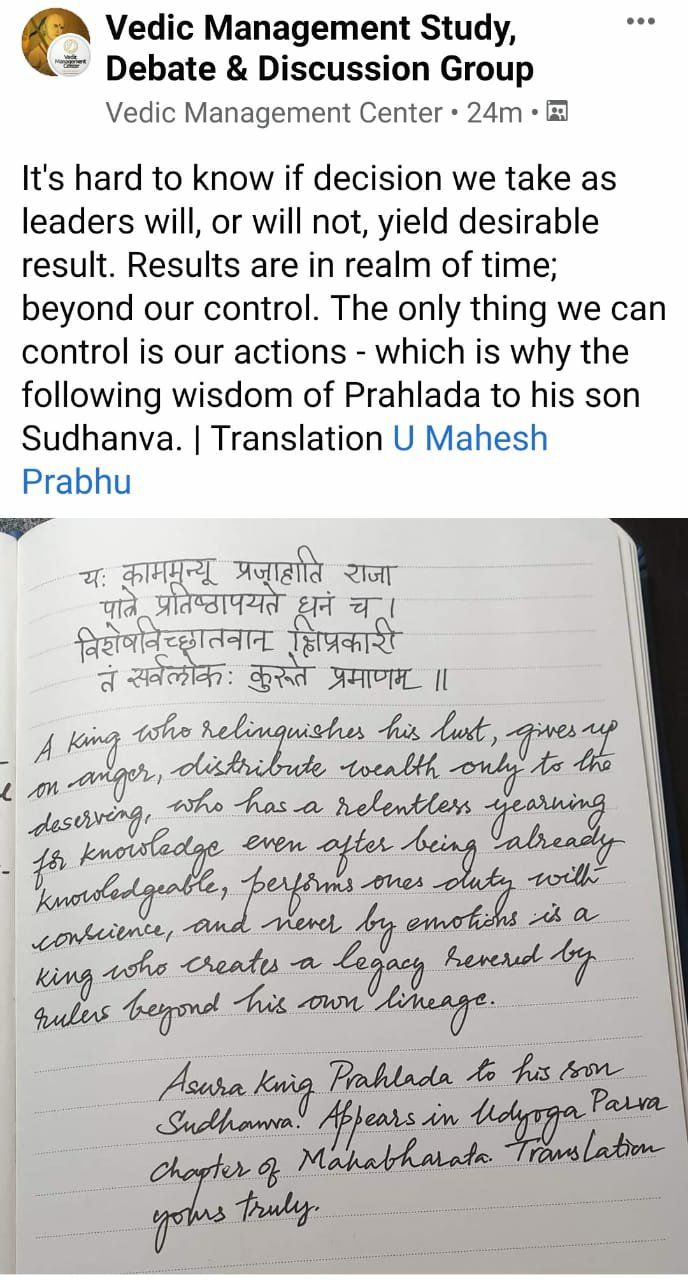 Vedic Management Study,
Debate & Discussion Group
Vedic Management Center • 24m •
It's hard to know if decision we take as
leaders will, or will not, yield desirable
result. Results are in realm of time;
beyond our control. The only thing we can
control is our actions - which is why the
following wisdom of Prahlada to his son
Sudhanva. | Translation U Mahesh
Prabhu
यः काममन्यू प्रजाहाति राजा
पात्रे प्रतिष्ठापयते धनं च ।
हिप्रकारी
तं सर्वलोकः कुरूते प्रमाणम् ॥
A King who relinquishes his lust, gives up
on anger, distribute wealth only to the
deserving, who has a relentless yearning
for knowledge even after being already
knowledgeable, performs ones duty with
conscience, and never by emotions is a
king who creates a legacy revered by
rulers beyond his own lineage.
Asura King Prahlada to his son
Sudhanva. Appears in Udyoga Parva
chapter of Mahabharata. Translation
yours truly.